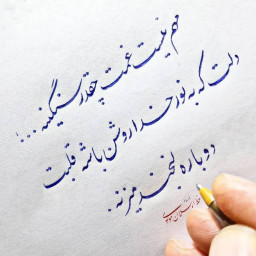 مهم نیست غمت چقدر سنگینه...!
دلت که به نور خدا روشن باشه قلبت
دوباره لبخند میزنه.